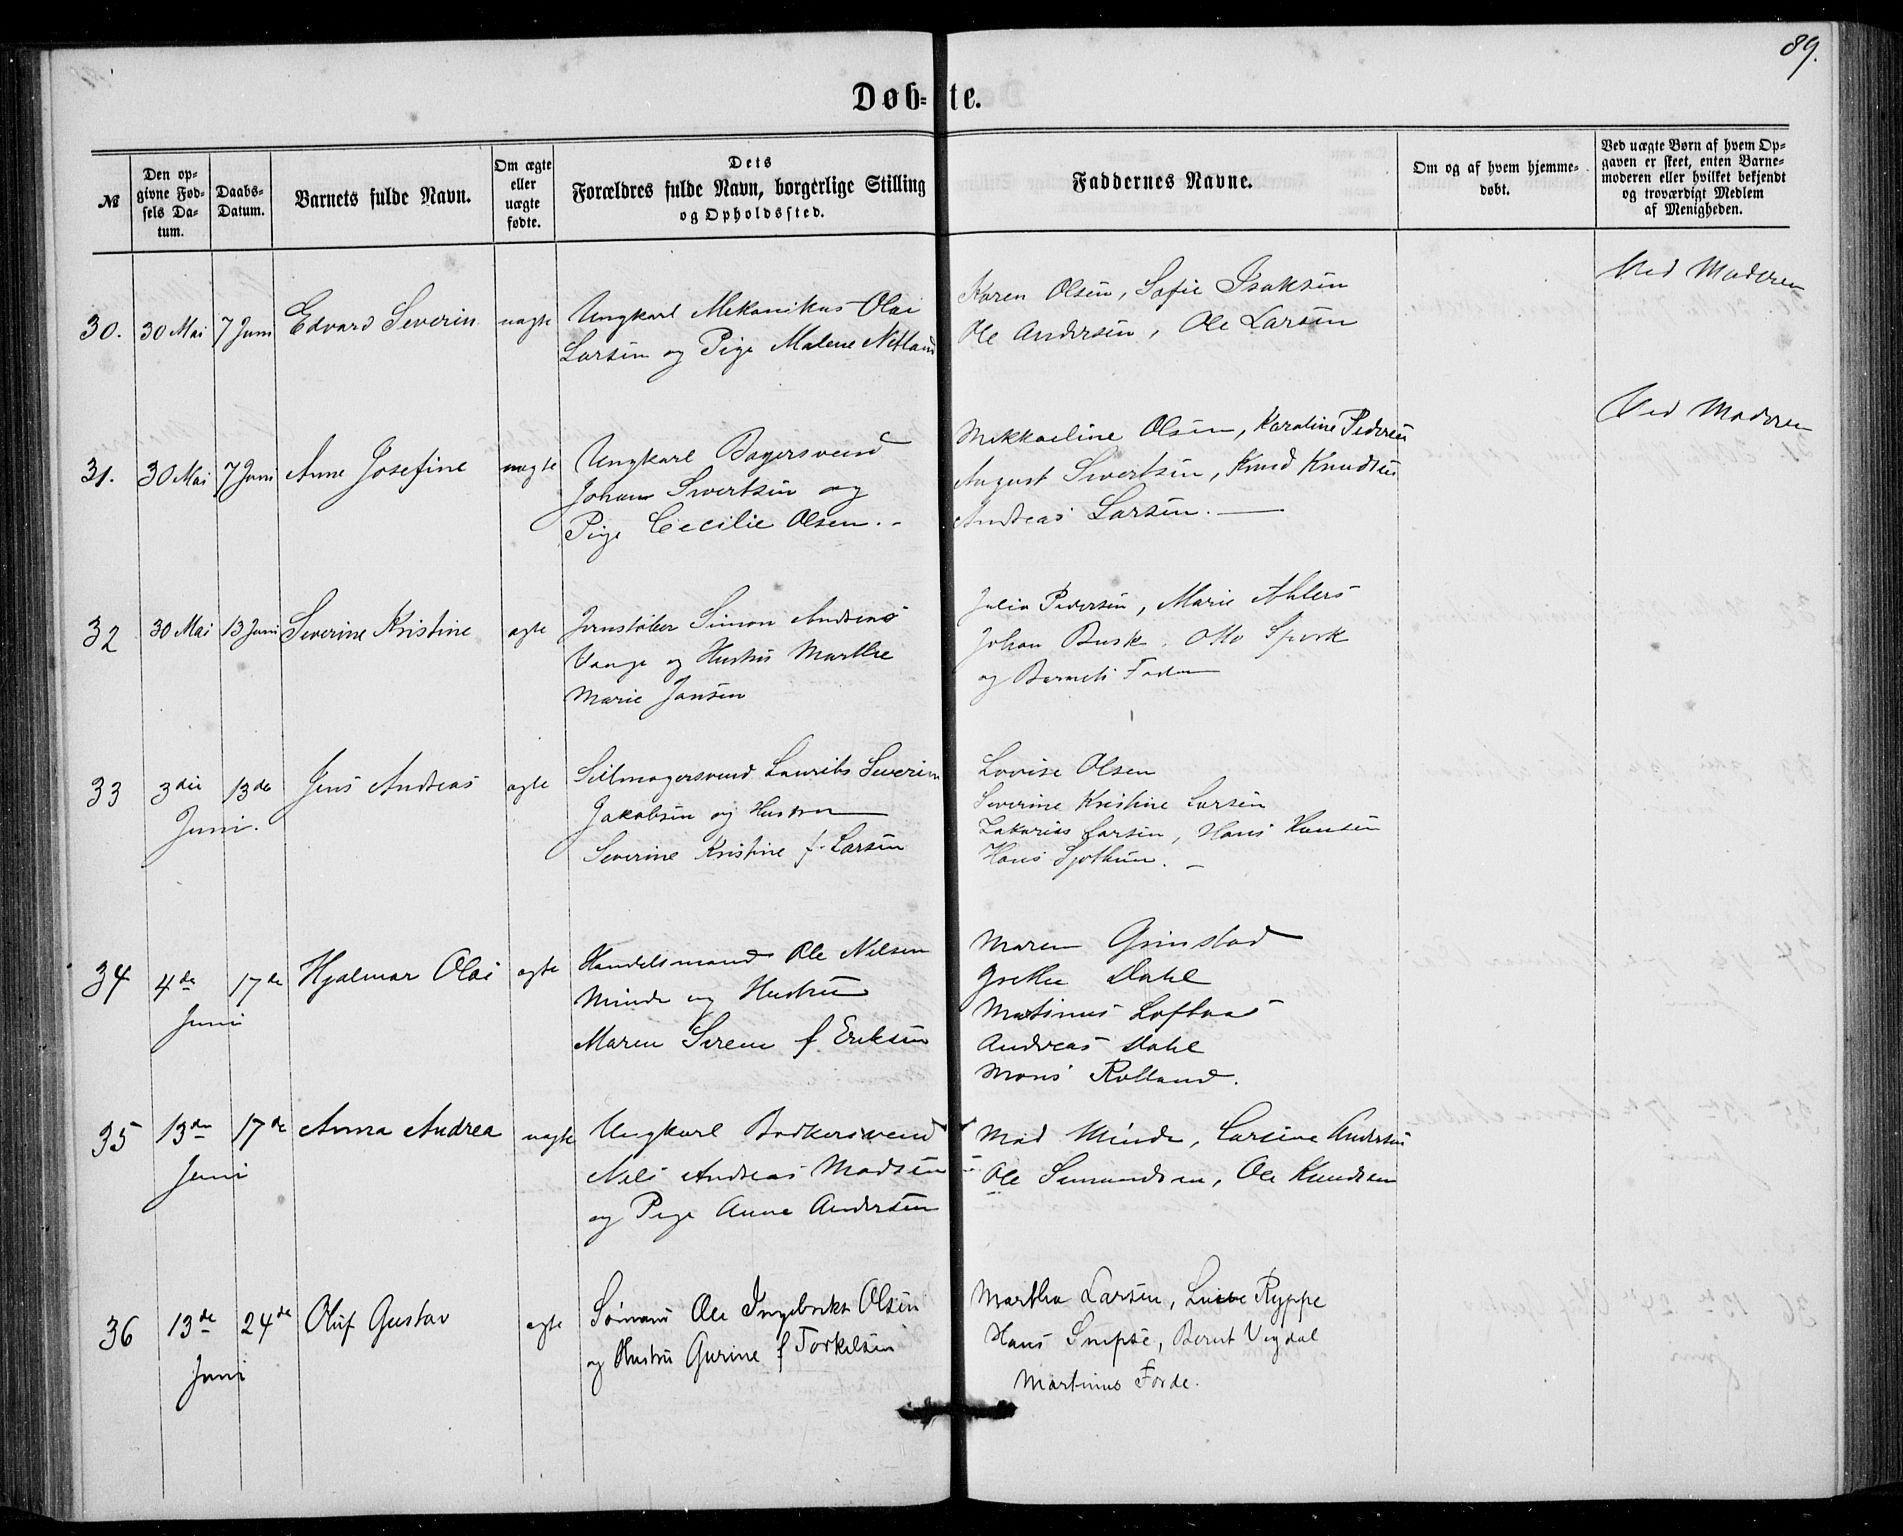 89.
Døb-te.
№
Den op-
givne Fød-
sels Da-
tum.
Daabs-
Datum.
Barnets fulde Navn.
Om ægte
eller
uægte
fødte.
Dets
Forældres fulde Navn, borgerlige Stilling
og Opholdssted.
Faddernes Navne.
Om og af hvem hjemme-
døbt.
Ved uægte Børn af hvem Op-
gaven er skeet, enten Barne-
moderen eller hvilket bekjendt
og troværdigt Medlem
af Menigheden.
30. 30 Mai 7 Juni Edvard Severin uægte
Ungkarl Mekanikus Olai
Larsen og Pige Malene Netland
Karen Olsen, Sofie Isaksen
Ole Andersen, Ole Larsen
Ved Moderen
31. 30 Mai 7 Juni Anne Josefine uægte
Ungkarl Bagersvend
Johan Sivertsen og
Pige Cecilie Olsen. -
Mikkaeline Olsen, Karoline Pedersen
August Sivertsen, Knud Knudsen
Andreas Larsen. —
Ved Moderen
32 30 Mai 13 Juni Severine Kristine ægte
Jernstøber Simon Andreas
Vaage og Hustru Marthe
Marie Jansen
Julia Pedersen, Marie Ahlers
Johan Busk, Otto Spork
og Barnets Fader
33 3die 13de Jens Andreas ægte
Juni.
Seilmagersvend Laurits Severin
Jakobsen og Hustru
Severine Kristine f. Larsen
Lovise Olsen
Severine Kristine Larsen
Zakarias Larsen, Hans Hansen
Hans
34 4de 17de Hjalmar Olai ægte
Juni
Handelsmand Ole Nilsen
Minde og Hustru
Maren Serene f. Eriksen
Maren Grinstad
Grethe Dahl
Matinus Loftaas
Andreas Dahl
Mons Rolland.
35 13de 17de Anna Andrea uægte
Juni
Ungkarl Bødkersvend
Nils Andreas Madsen
og Pige Anne Andersen
Mad Minde, Larsine Andersen
Ole Simundsen, Ole Knudsen
36 13de 24de Oluf Gustav ægte
Juni
Sømand Ole Ingebrikt Olsen
og Hustru Gurine f Torkelsen
Martha Larsen, Ryppe
Hans Snipse, Bernt Vigdal
Martinus Forde.